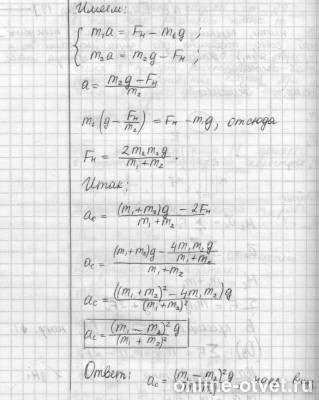 Имеем:
m₁a = Fн - m₁g ;
m₂a = m₂g - Fн ;
a = (m₂g - Fн)/m₂
m₁(g - Fн/m₂) = Fн - m₁g, отсюда
Fн = 2m₁m₂g/(m₁ + m₂).
Итак:
a_c = ((m₁+m₂)g - 2Fн)/(m₁+m₂)
a_c = ((m₁+m₂)g - 4m₁m₂g/(m₁+m₂))/(m₁+m₂)
a_c = ((m₁+m₂)² - 4m₁m₂)g/(m₁+m₂)²
a_c = (m₁ - m₂)²g/(m₁ + m₂)²
Ответ: a_c = (m₁ - m₂)²g
online-otvet.ru